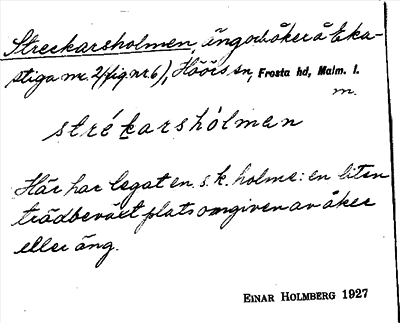 Streckarsholmen, äng och åker å Eka-
stiga nr. 2 (fig. nr 6), Höörs sn, Frosta hd, Malm. l.
m.
strékarshòlmen
Här har legat en s.k. holme: en liten
trädbeväxt plats omgiven av åker
eller äng.
EINAR HOLMBERG 1927